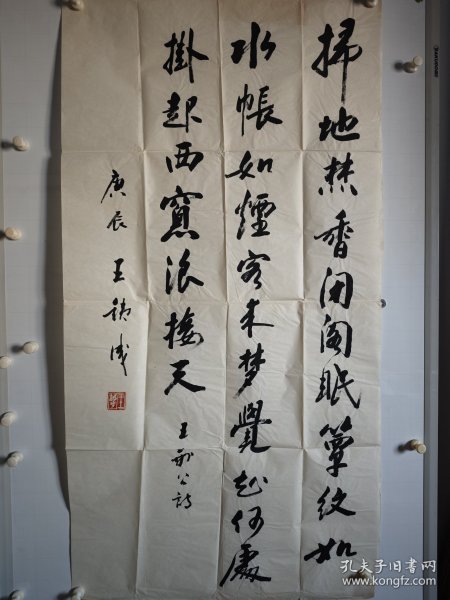 掃地焚香闭阁眠簟纹如
水帳如煙客来梦覺知何處
掛起西窗浪接天
王荆公詩
庚辰 王
孔夫子旧书网
www.kongfz.com